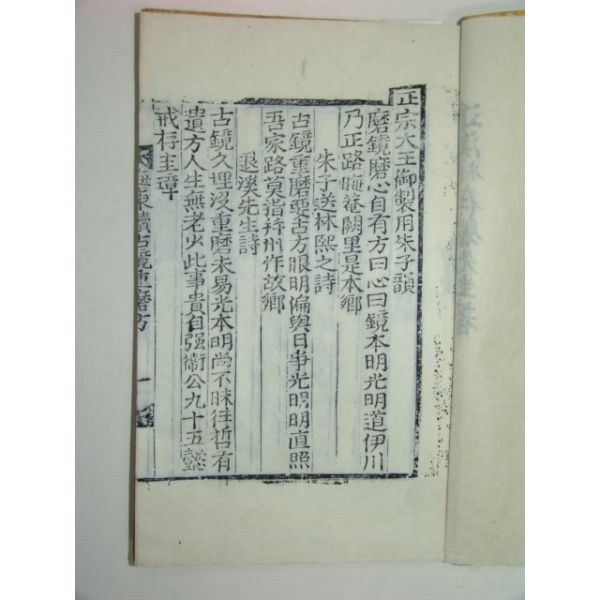 正宗大王御製用朱子韻
磨鏡磨心自有方曰心曰鏡本明光明道伊川
乃正路晦菴闕里是本鄉
朱子送林熙之詩
古鏡重磨要古方眼明偏與日爭光明明直照
吾家路莫指幷州作故鄉
退溪先生詩
古鏡久埋沒重磨未易光本明尚不昧往哲有
遺方人生無老少此事貴自强衛公九十五懿
戒存圭璋
續古鏡重磨方
一